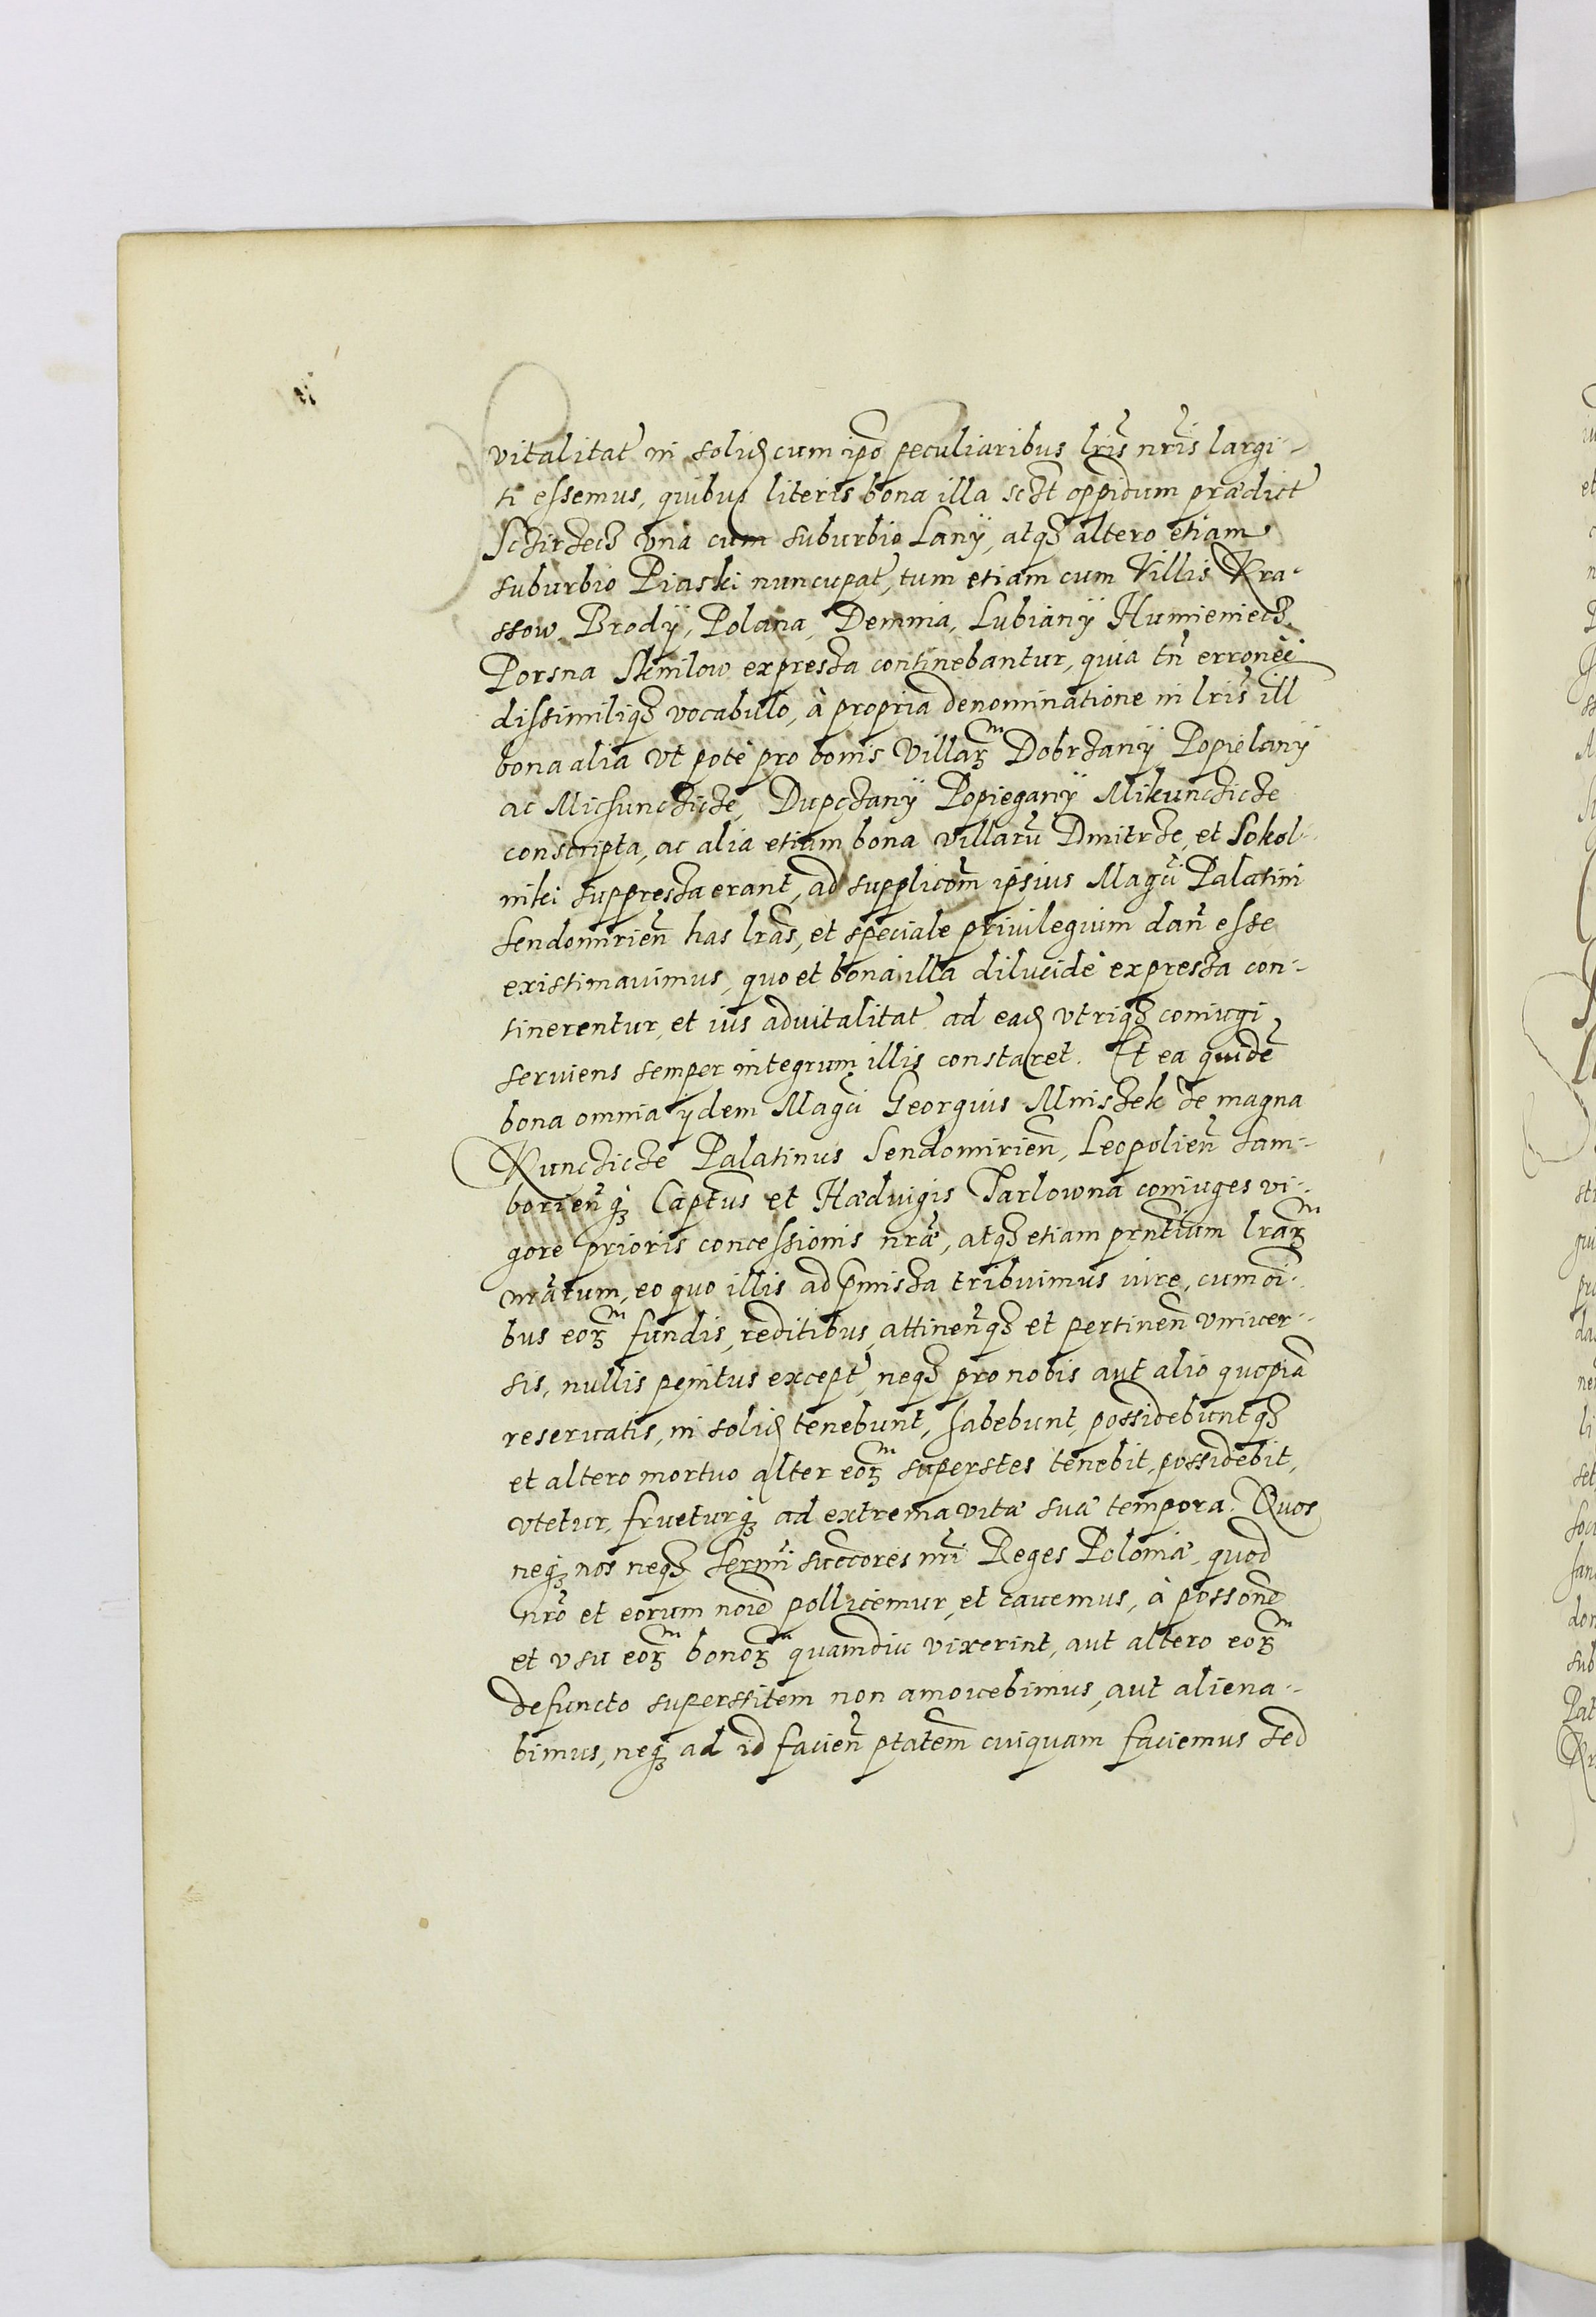 vitalitat̃ in solid̃ cum ip̃o peculiaribus lr̃is nr̃is largi-
ti essemus, quibus literis bona illa sczt oppidum prædict̃
Sczirzecz vnà cum suburbio Lanÿ, atqꝫ altero etiam
suburbio Piaski nuncupat̃, tum etiam cum Villis Kra-
ssow Brodÿ, Polana, Demnia, Lubianÿ Humieniecz
Porsna Sknilow expressa continebantur, quia tñ erroneè
dissimiliqꝫ vocabulo, à propria denominatione in lr̃is ill
bona alia vt potè pro bonis Villaꝝ Dobrzanÿ Popielanÿ
ac Micsunczicze, Dupczanÿ Popieganÿ Mikunczicze
conscripta, ac alia etiam bona villarũ Dmitrze, et Sokol-
niki suppressa erant, ad supplicõm ipsius Magci Palatini
Sendomirieñ has lr̃as, et speciale priuilegium dañ esse
existimauimus, quo et bona illa dilucidè expressa con-
tinerentur, et ius aduitalitat̃ ad ead̃ vtriqꝫ coniugi
seruiens semper integrum illis constaret. Et ea quidẽ
bona omnia ÿdem Magci Georgius Mniszek de magna
Kunczicze Palatinus Sendomirieñ, Leopolieñ Sam-
borieñqꝫ Captũs et Hæduigis Tarlowna coniuges vi-
gore prioris concessionis nr̃æ, atqꝫ etiam prñtium lr̃aꝝ
nr̃arum, eo quo illis ad p̃missa tribuimus iure, cum oĩ-
bus eoꝝ fundis, reditibus, attineñqꝫ et pertineñ vniuer-
sis, nullis penitus except̃, neqꝫ pro nobis aut alio quopiã
reseruatis, in solid̃ tenebunt, habebunt, possidebuntqꝫ
et altero mortuo alter eoꝝ superstes tenebit, possidebit,
vtetur, frueturqꝫ ad extrema vitæ suæ tempora. Quos
neqꝫ nos neqꝫ Serm̃i succores nr̃i Reges Poloniæ, quod
nr̃o et eorum noĩe pollicemur, et cauemus, à possone
et vsu eoꝝ bonoꝝ quamdiu vixerint, aut altero eoꝝ
defuncto superstitem non amouebimus, aut aliena-
bimus, neqꝫ ad id facieñ ptatem̃ cuiquam faciemus sed